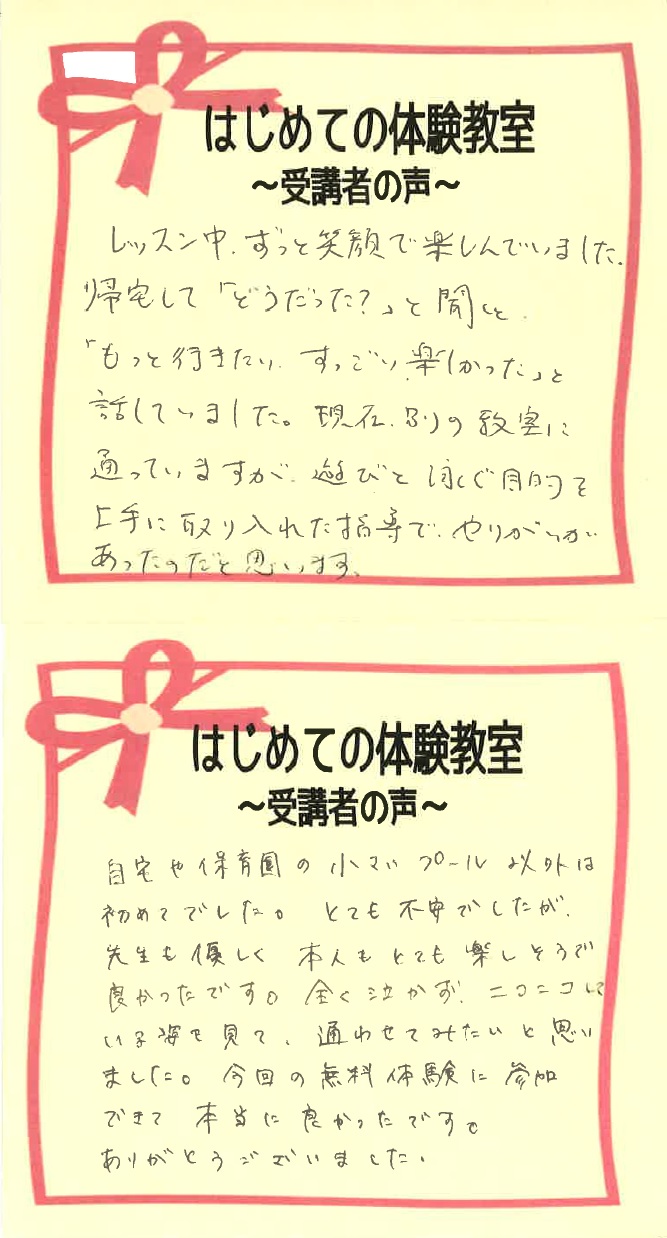 はじめての体験教室
～受講者の声～
レッスン中、ずっと笑顔で楽しんでいました。
帰宅して「どうだった？」と聞くと、
「もっと行きたい、すっごい楽しかった」と
話していました。現在、別の教室に
通っていますが、遊びと泳ぐ目的を
上手に取り入れた指導で、やりがいが
あったのだと思います。
はじめての体験教室
～受講者の声～
自宅や保育園の小さいプール以外は
初めてでした。とても不安でしたが、
先生も優しく本人もとても楽しそうで
良かったです。全く泣かず、ニコニコして
いる姿を見て、通わせてみたいと思い
ました。今回の無料体験に参加
できて本当に良かったです。
ありがとうございました。